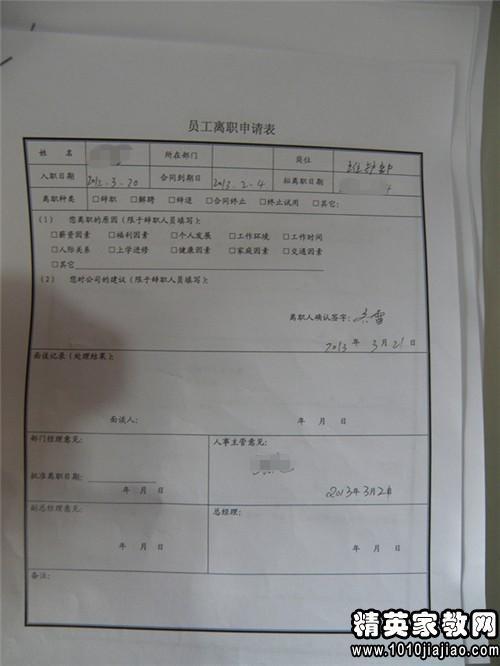 员工离职申请表
姓 名 所在部门 岗位
入职日期 2012-3-20 合同到期日 2013.2-4 拟离职日期
离职种类 □辞职 □解聘 □辞退 □合同终止 □终止试用 □其它:
(1) 您离职的原因(限于辞职人员填写):
□薪资因素 □福利因素 □个人发展 □工作环境 □工作时间
□人际关系 □上学进修 □健康因素 □家庭因素 □交通因素
□其它
(2) 您对公司的建议(限于辞职人员填写):
离职人确认签字:
2013 年 3 月 21 日
面谈记录(处理结果):
面谈人: 年 月 日
部门经理意见: 人事主管意见:
批准离职日期:
年 月 日 2013年3月2日
副总经理意见: 总经理:
年 月 日 年 月 日
备注:
精英家教网
www.1010jiajiao.com